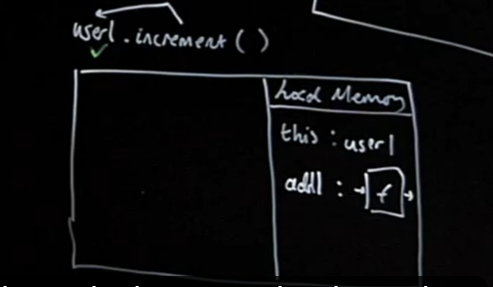 user1.increment()
Local Memory
this : user1
add1 : → f →